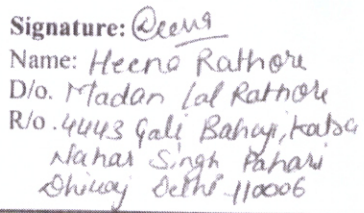 Signature: Heena
Name: Heena Rathore
D/o. Madan lal Rathore
R/o. 4443 Gali Bahuji,
Nahar Singh Pahari
Dhiraj Delhi -110006